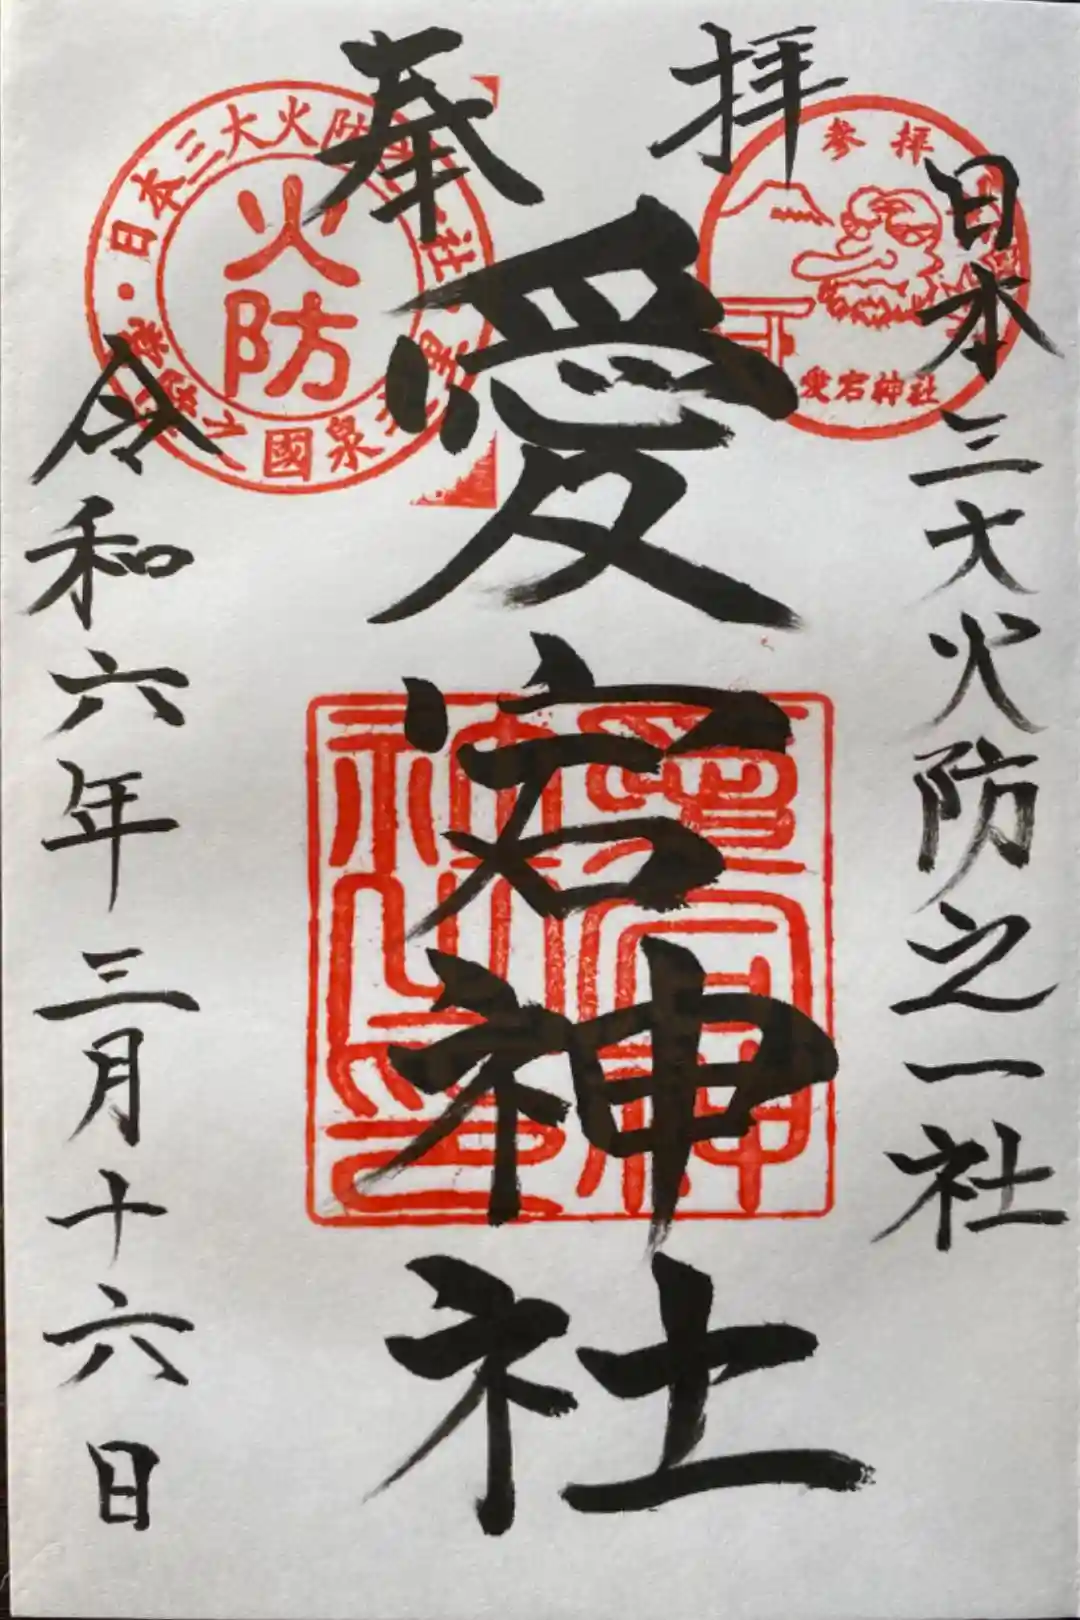 奉拝
日本三大火防之一社
愛宕神社
令和六年三月十六日
参拝
愛宕神社
火防
日本三大火防
泉國